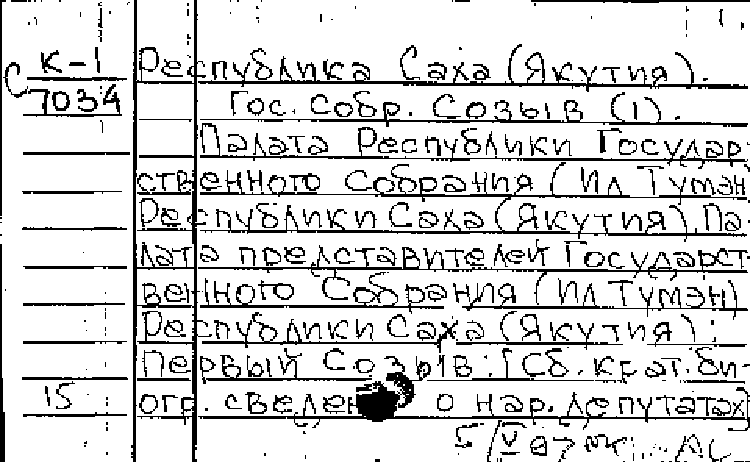 К-1
С 7034
Республика Саха (Якутия).
Гос. собр. Созыв (1).
Палата Республики Государ-
ственного Собрания (Ил Тумэн)
Республики Саха (Якутия), Па-
лата представителей Государст-
венного Собрания (Ил Тумэн)
Республики Саха (Якутия) :
Первый Созыв : [Сб. крат. би-
15 огр. сведен о нар. депутатах]
5/V 97